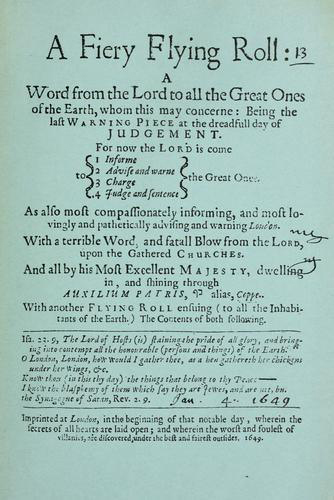 A Fiery Flying Roll: 13
A
Word from the Lord to all the Great Ones
of the Earth, whom this may concerne: Being the
last WARNING PIECE at the dreadfull day of
JUDGEMENT.
For now the LORD is come
to
1 Informe
2 Advise and warne
3 Charge
4 Judge and sentence
the Great Ones.
As also most compassionately informing, and most lo-
vingly and pathetically advising and warning London.
With a terrible Word, and fatall Blow from the LORD,
upon the Gathered CHURCHES.
And all by his Most Excellent MAJESTY, dwelling
in, and shining through
AUXILIUM PATRIS, alias, Coppe.
With another FLYING ROLL ensuing (to all the Inhabi-
tants of the Earth.) The Contents of both following.
Isa. 22.9, The Lord of Hosts (is) staining the pride of all glory, and bring-
ing into contempt all the honourable (persons and things) of the Earth.
O London, London, how would I gather thee, as a hen gathereth her chickens
under her wings, &c.
Know thou (in this thy day) the things that belong to thy Peace
I know the blasphemy of them which say they are Jewes, and are not, but
the Synagogue of Satan, Rev. 2. 9. Jan. 4. 1649
Imprinted at London, in the beginning of that notable day, wherein the
secrets of all hearts are laid open; and wherein the worst and foulest of
villanies, are discovered, under the best and fairest outsides. 1649.